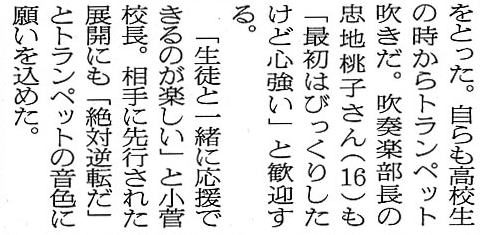 をとった。自らも高校生
の時からトランペット
吹きだ。吹奏楽部長の
忠地桃子さん(16)も
「最初はびっくりした
けど心強い」と歓迎す
る。
「生徒と一緒に応援で
きるのが楽しい」と小菅
校長。相手に先行された
展開にも「絶対逆転だ」
とトランペットの音色に
願いを込めた。